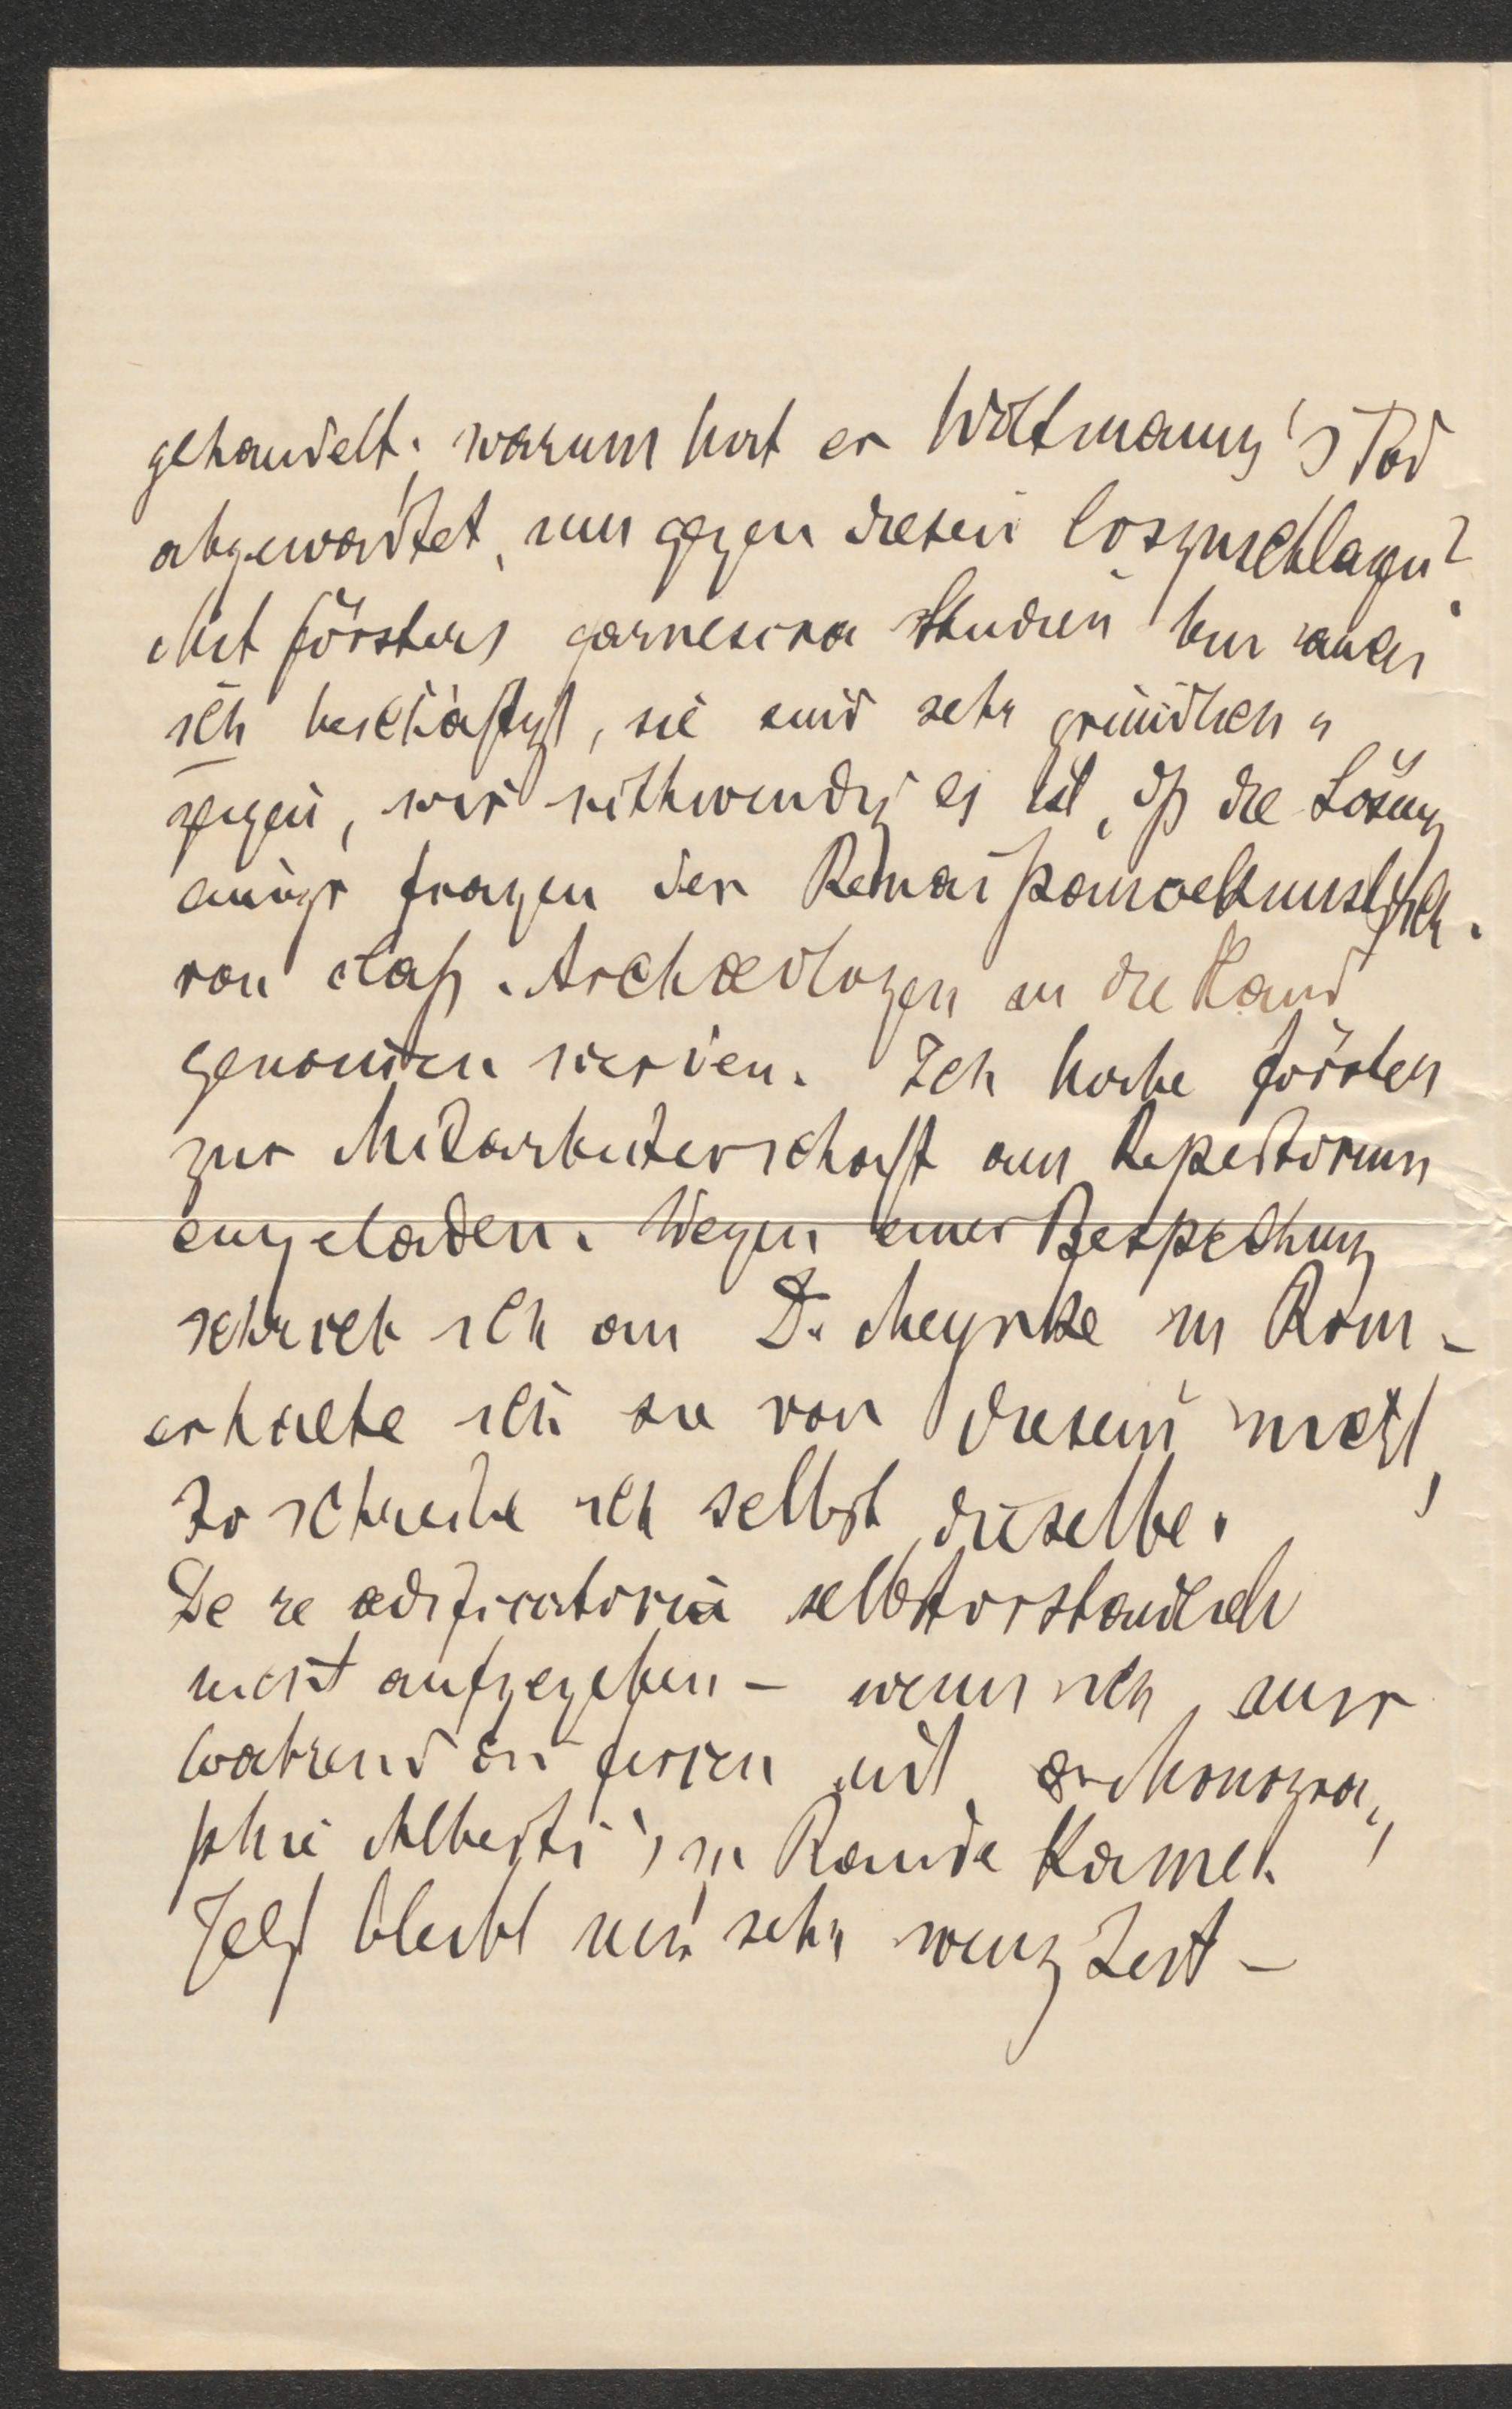 gehandelt; warum hat er Woltmann's Tod
abgewartet, um gegen diesen loszuschlagen?
Mit Försters Farnesina Studien bin auch
ich beschäftigt, sie sind sehr gründlich u
zeigen, wie nothwendig es ist, dß die Lösung
einiger Fragen der Renaissancekunstgesch.
von class. Archæologen in die Hand
genommen werden. Ich habe Förster
zur Mitarbeiterschaft am Repertorium
eingeladen. Wegen einer Besprechung
schrieb ich an Dr. Meyncke in Rom –
erhalte ich sie von diesem nicht,
so schreibe ich selbst dieselbe.
De re ædificatoria selbstverständlich
nicht aufgegeben – wenn ich nur
während der Ferien mit der Monogra-
phie Alberti's zu Rande käme.
Jetzt bleibt mir sehr wenig Zeit –